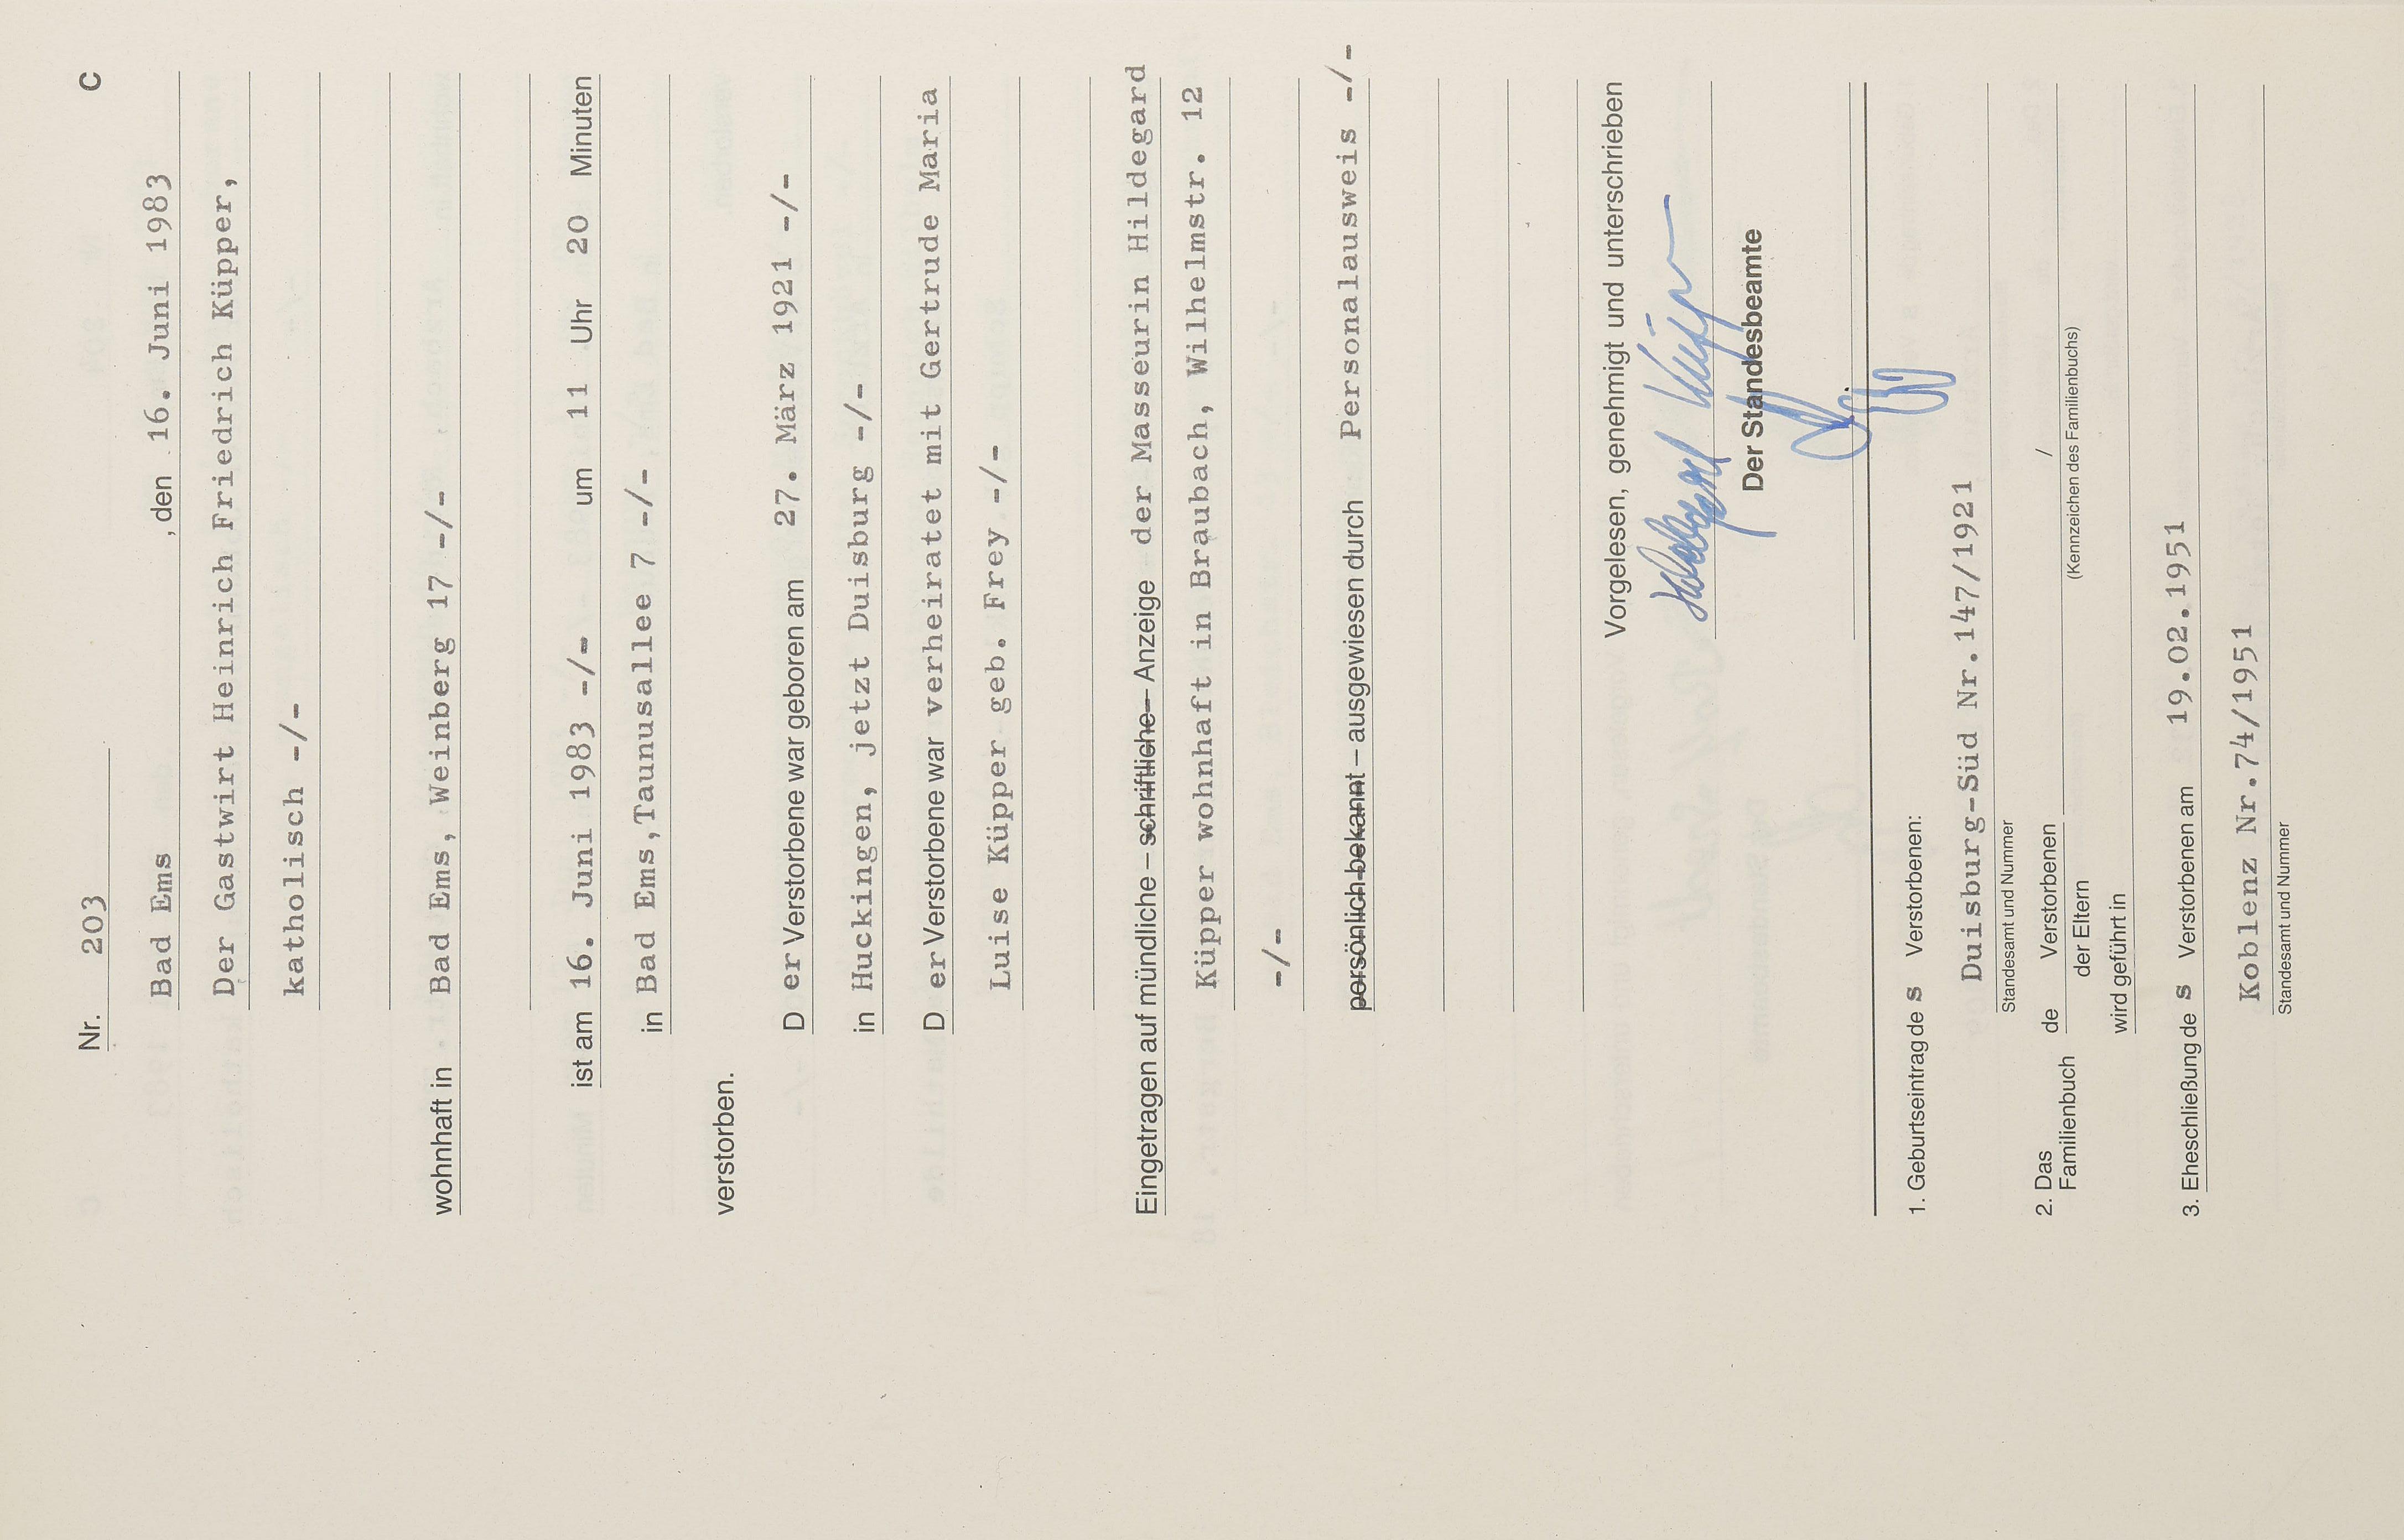 Nr. 203 C
Bad Ems , den 16. Juni 1983
Der Gastwirt Heinrich Friedrich Küpper,
katholisch -/-
wohnhaft in Bad Ems, Weinberg 17 -/-
ist am 16. Juni 1983 -/- um 11 Uhr 20 Minuten
in Bad Ems,Taunusallee 7 -/-
verstorben.
D er Verstorbene war geboren am 27. März 1921 -/-
in Huckingen, jetzt Duisburg -/-
D er Verstorbene war verheiratet mit Gertrude Maria
Luise Küpper geb. Frey -/-
Eingetragen auf mündliche – schriftliche – Anzeige der Masseurin Hildegard
Küpper wohnhaft in Braubach, Wilhelmstr. 12
-/-
persönlich bekannt – ausgewiesen durch Personalausweis -/-
Vorgelesen, genehmigt und unterschrieben
Hildegard Küpper
Der Standesbeamte
1. Geburtseintrag de s Verstorbenen:
Duisburg-Süd Nr.147/1921
Standesamt und Nummer
2. Das Familienbuch de Verstorbenen /
der Eltern (Kennzeichen des Familienbuchs)
wird geführt in
3. Eheschließung de s Verstorbenen am 19.02.1951
Koblenz Nr.74/1951
Standesamt und Nummer